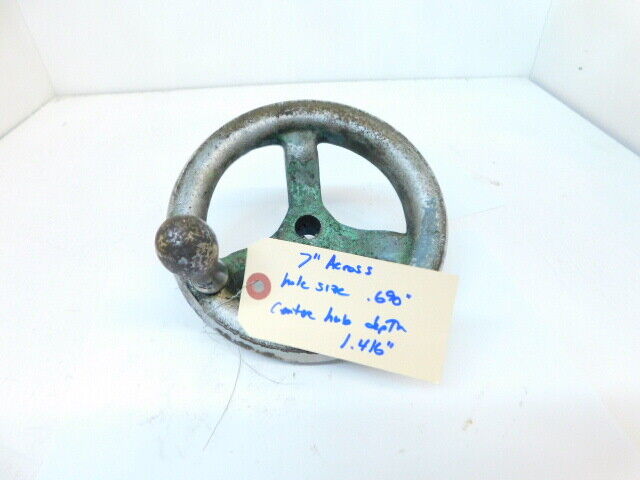 7" Across
hole size .690"
Center hub depth
1.416"